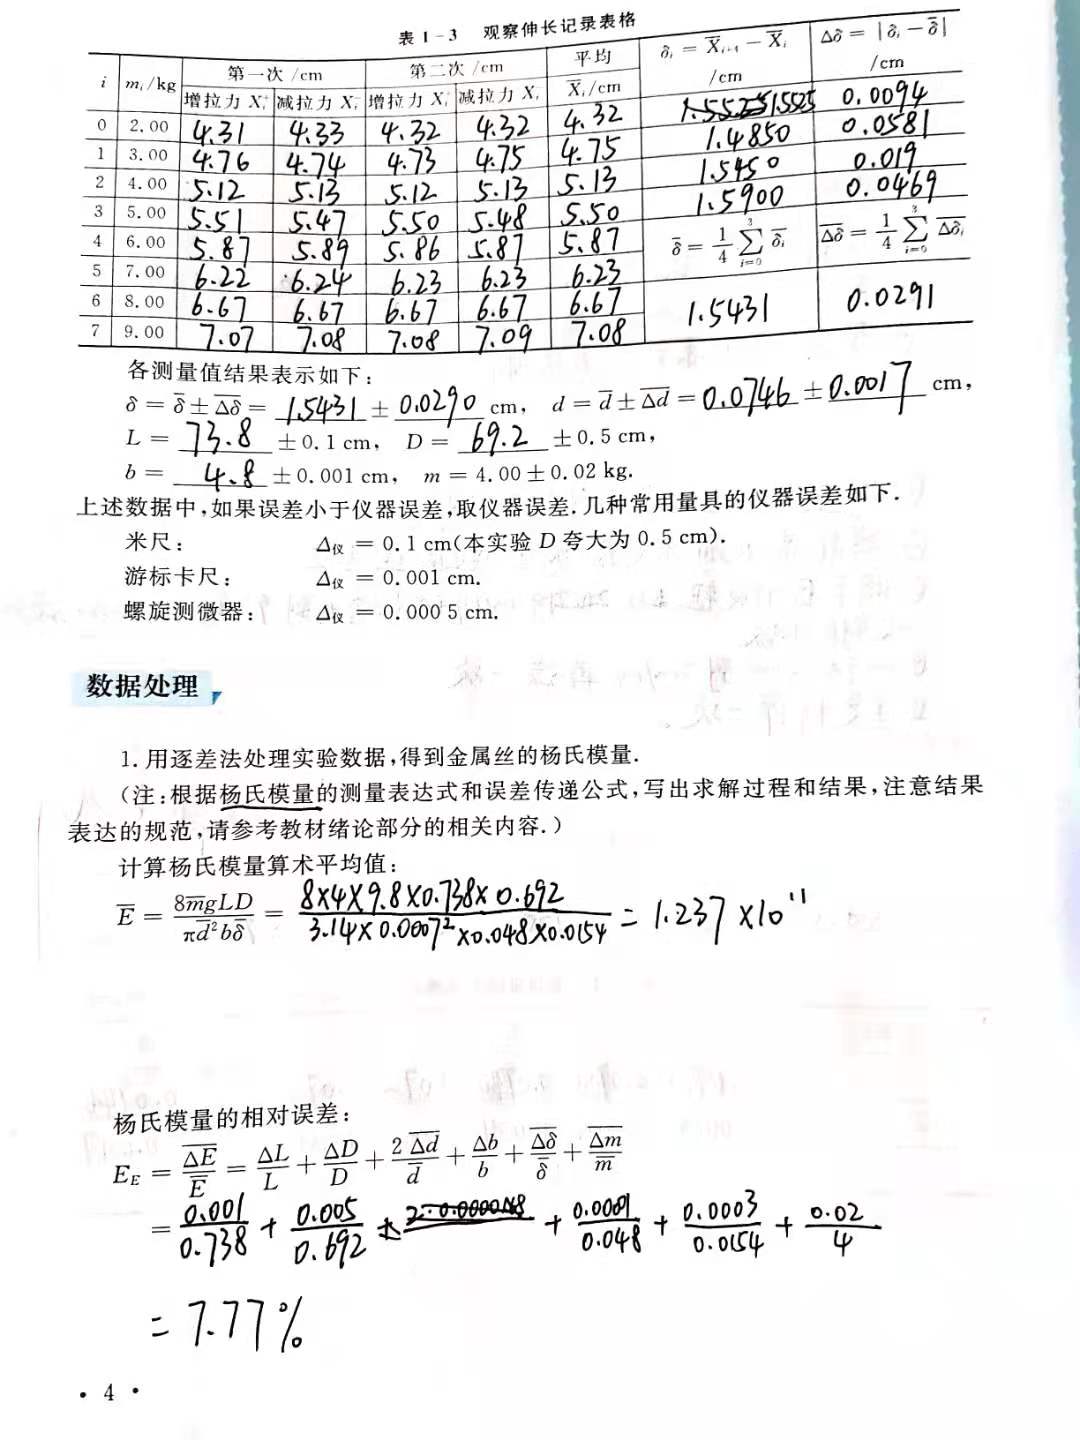 表 1-3 观察伸长记录表格
i m_i/kg 第一次 /cm 第二次 /cm 平均 X̄_i/cm δ_i = X̄_{i+4} − X̄_i /cm Δδ = |δ_i − δ̄| /cm
增拉力 X_i 减拉力 X_i 增拉力 X_i 减拉力 X_i
0 2.00 4.31 4.33 4.32 4.32 4.32 1.5525 0.0094
1 3.00 4.76 4.74 4.73 4.75 4.75 1.4850 0.0581
2 4.00 5.12 5.13 5.12 5.13 5.13 1.5450 0.019
3 5.00 5.51 5.47 5.50 5.48 5.50 1.5900 0.0469
4 6.00 5.87 5.89 5.86 5.87 5.87 δ̄ = 1/4 ∑_{i=0}^{3} δ̄_i Δδ̄ = 1/4 ∑_{i=0}^{3} Δδ̄_i
5 7.00 6.22 6.24 6.23 6.23 6.23
6 8.00 6.67 6.67 6.67 6.67 6.67 1.5431 0.0291
7 9.00 7.07 7.08 7.08 7.09 7.08
各测量值结果表示如下:
δ = δ̄ ± Δδ̄ = 1.5431 ± 0.0290 cm, d = d̄ ± Δd̄ = 0.0746 ± 0.0017 cm,
L = 73.8 ± 0.1 cm, D = 69.2 ± 0.5 cm,
b = 4.8 ± 0.001 cm, m = 4.00 ± 0.02 kg.
上述数据中,如果误差小于仪器误差,取仪器误差.几种常用量具的仪器误差如下.
米尺: Δ仪 = 0.1 cm(本实验 D 夸大为 0.5 cm).
游标卡尺: Δ仪 = 0.001 cm.
螺旋测微器: Δ仪 = 0.000 5 cm.
数据处理
1. 用逐差法处理实验数据,得到金属丝的杨氏模量.
(注:根据杨氏模量的测量表达式和误差传递公式,写出求解过程和结果,注意结果
表达的规范,请参考教材绪论部分的相关内容.)
计算杨氏模量算术平均值:
Ē = 8m̄gLD / πd̄²bδ̄ = 8×4×9.8×0.738×0.692 / 3.14×0.0007²×0.048×0.0154 = 1.237 ×10¹¹
杨氏模量的相对误差:
E_E = ΔĒ/Ē = ΔL/L + ΔD/D + 2Δd̄/d̄ + Δb/b + Δδ̄/δ̄ + Δm̄/m̄
= 0.001/0.738 + 0.005/0.692 + 0.0001/0.048 + 0.0003/0.0154 + 0.02/4
= 7.77%
· 4 ·